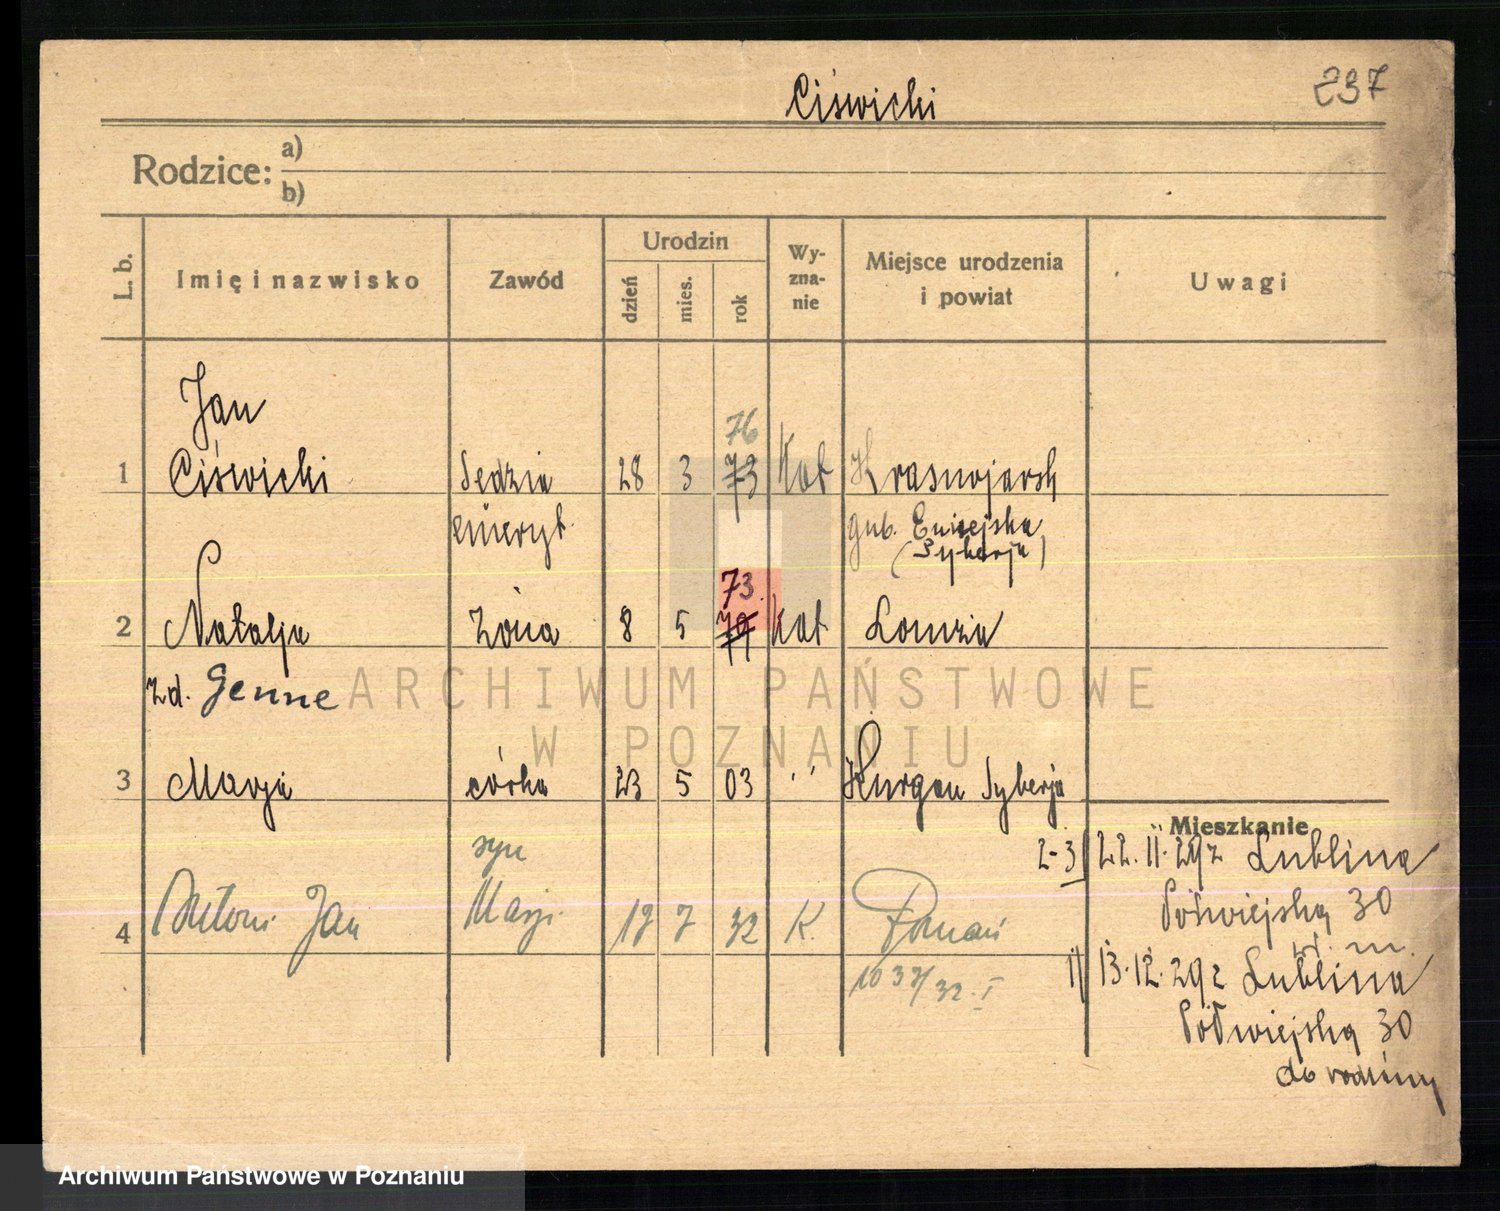 Ciświcki
237
Rodzice: a)
b)
L. b.
Imię i nazwisko
Zawód
Urodzin
dzień
mies.
rok
Wy-
zna-
nie
Miejsce urodzenia
i powiat
Uwagi
Jan
76
1 Ciświcki Sędzia 28 3 73 Kat Krasnojarsk
emeryt. gub. Enisejska
(Syberja)
73.
2 Natalja żona 8 5 Kat Łomża
zd. Genne
ARCHIWUM PAŃSTWOWE
W POZNANIU
3 Marja córka 23 5 03 " Kurgan Syberja
Mieszkanie
syn
2-3/ 22. II. 29 z Lublina
4 Antoni Jan Marji 17 7 32 K. Poznań
Półwiejska 30
1037/32. I
1/ 13.12.29 z Lublina
Półwiejska 30
do rodziny
Archiwum Państwowe w Poznaniu